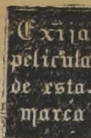 Exija
película
de esta
marca